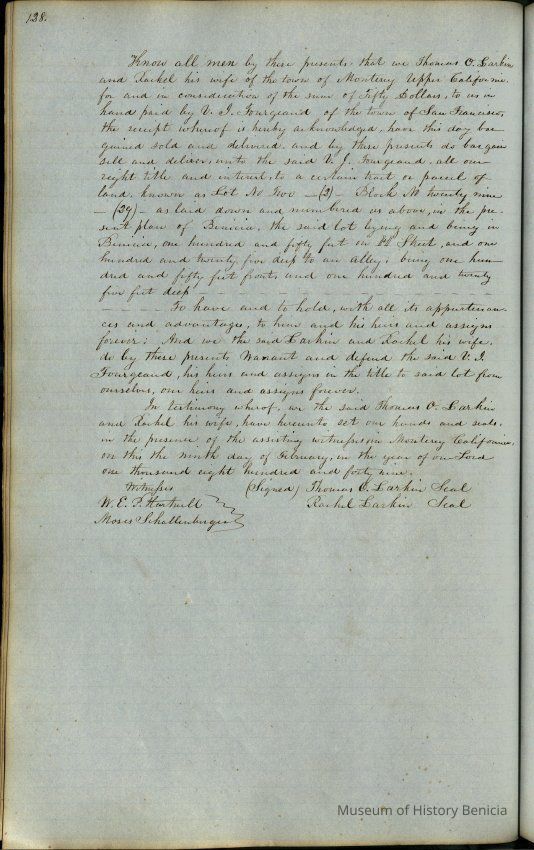 128.
Know all men by these presents that we Thomas O. Larkin
and Rachel his wife of the town of Monterey Upper California
for and in consideration of the sum of Fifty Dollars, to us in
hand paid by V. J. Fourgeaud of the town of San Francisco,
the receipt whereof is hereby acknowledged, have this day bar
gained sold and delivered and by these presents do bargain
sell and deliver, unto the said V. J. Fourgeaud, all our
right title and interest, to a certain tract or parcel of
land, known as Lot No Two — (2) — Block No twenty nine
— (29) — as laid down and numbered as above, in the pre-
sent plan of Benicia, the said lot lying and being in
Benicia, one hundred and fifty feet on Street, and one
hundred and twenty five deep to an alley, being one hun-
dred and fifty feet front, and one hundred and twenty
five feet deep
To have and to hold, with all its appurtenan-
ces and advantages, to him and his heirs and assigns
forever; And we the said Larkin and Rachel his wife,
do by these presents Warrant and defend the said V. J.
Fourgeaud, his heirs and assigns in the title to said lot from
ourselves, our heirs and assigns forever.
In testimony whereof, we the said Thomas O. Larkin
and Rachel his wife, have hereunto set our hands and seals
in the presence of the assisting witnesses in Monterey California,
on this the ninth day of February, in the year of our Lord
one thousand eight hundred and forty nine.
Witnesses (Signed) Thomas O. Larkin Seal
W. E. P. Hartnell Rachel Larkin Seal
Moses Schallenberger
Museum of History Benicia